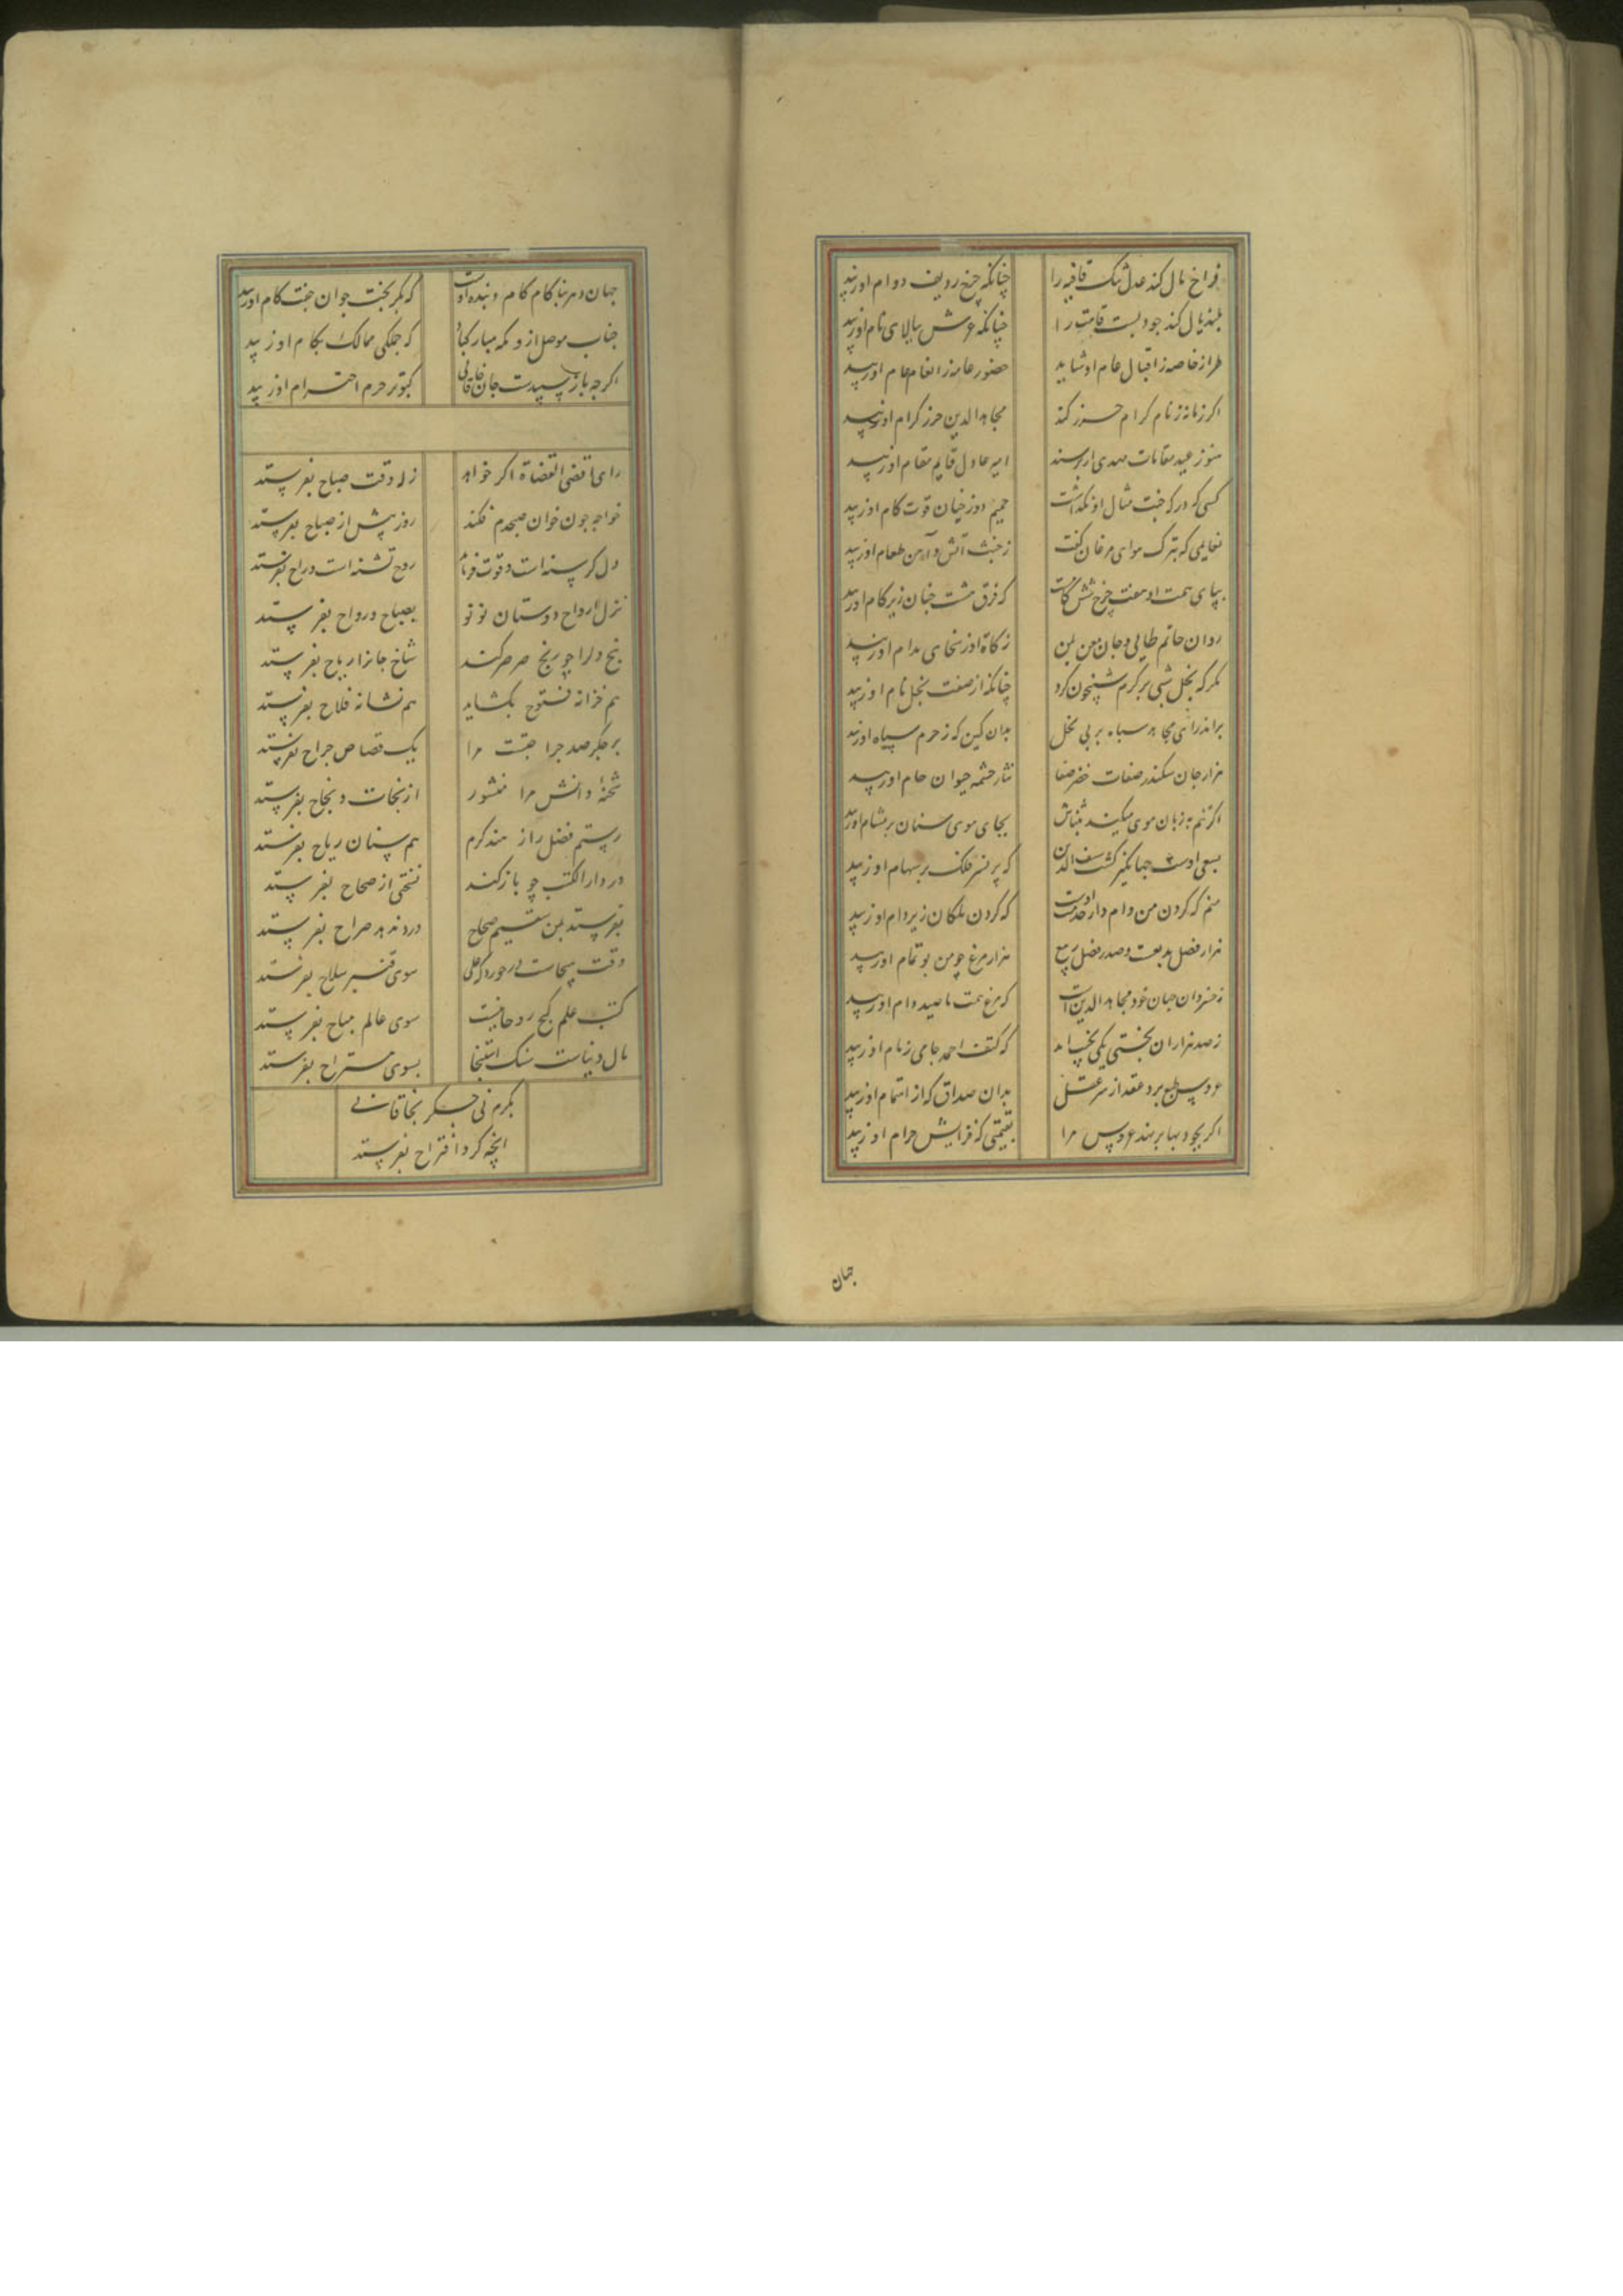 فراخ بال کند عدل تنک قافیه را چنانکه چرخ ردیف دوام او زیبد
بلند یال کند جود پست قامت را چنانکه عرش ببالای نام او زیبد
طراز خاصه ز اقبال عام او شاید حضور عامه ز انعام عام او زیبد
اکر زمانه ز نام کرام حرز کند مجاهد الدین حرز کرام او زیبد
هنوز عید مقامات مهدی ار برسند امیر عادل قایم مقام او زیبد
کسی که درکه جنت مثال او نکذاشت حمیم دوزخیان قوت کام او زیبد
نعایمی که بترک هوای مرغان کفت ز خبث آتش و آهن طعام او زیبد
بپای همت او هفت چرخ شش کامست که فرق هشت جنان زیر کام او زیبد
روان حاتم طایی و جان معن یمن زکاة از سخای مدام او زیبد
مکر که بخل شبی بر کرم شبیخون کرد چنانکه از صفت بخل نام او زیبد
براند رای مجاهد سپاه بر پی بخل بدان کین که ز حرم سپاه او زیبد
هزار جان سکندر صفات خضر صفا نثار چشمه حیوان جام او زیبد
اکر نیم به زبان موی میکند بثناش بجای موی سنان بر مشام او زیبد
بسعی اوست جهانکیر کشت سیف الدین که پر نسر فلک بر سهام او زیبد
منم که کردن من وام دار خدمت اوست که کردن ملکان زیر وام او زیبد
هزار فضل بدیعست و صدر فضل ربیع هزار مرغ چو من بو تمام او زیبد
ز خسروان جهان خود مجاهد الدین است که مرغ همت ما صید دام او زیبد
ز صد هزاران بختی یکی نجیب آمد که کتف احمد جای زمام او زیبد
عروس طبع برو عقد از سر عقل بدان صداق که از اهتمام او زیبد
اکر بجود بها بر نهد عروس مرا بقیمتی که فزایش حرام او زیبد
جهان
جهان و هر بنا کام کام و بنده اوست که بکر بخت جوان جفت کام او زیبد
جناب موصل ازو مکه مبارک باد که جملکی ممالک بکام او زیبد
اکرچه باز سپیدست جان خاقانی کبوتر حرم احترام او زیبد
رای اقضی القضاة اکر خواهد زله وقت صباح بفرستد
خواجه چون خوان صبحدم فکند روز پیش از صباح بفرستد
دل کرسنه است و قوت فرماید روح تشنه است و راح بفرستد
نزل ارواح دوستان نو نو بصباح و رواح بفرستد
بیخ دل را چو رنج صرصر کند شاخ جانرا ریاح بفرستد
هم خزانه فتوح بکشاید هم نشانه فلاح بفرستد
بر جکر صد جراحتست مرا یک قصاص جراح بفرستد
شحنه دانش مرا منشور از نجات و نجاح بفرستد
رستم فضل را ز هند کرم هم سنان ریاح بفرستد
در دار الکتب چو باز کند نسختی از صحاح بفرستد
بفرستد بمن سقیم صحاح درد ندهد صراح بفرستد
سوی قنبر سلاح بفرستد
کتب علم کنج روحانیست سوی عالم مباح بفرستد
مال دنیاست سنک استنجا بسوی مستراح بفرستد
بکرم نی جکر بخاقانی
آنچه کرد اقتراح بفرستد